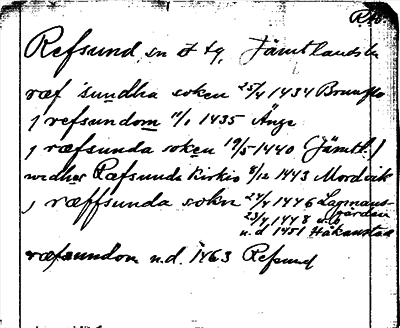 Refsund, sn o tg, Jämtlands l.
ræfsundha soken 25/4 1434 Brunflo
j refsundom 11/1 1435 Änge
j ræfsunda soken 19/5 1440 (Jämtl.)
widher Ræfsunda kirkio 8/12 1443 Mordvik
j ræffsunda sokn 24/4 1446 Lapmans-
gården
23/4 1448
n.d 1451 Håkanstad
ræfsundom n.d. 1463 Refsund